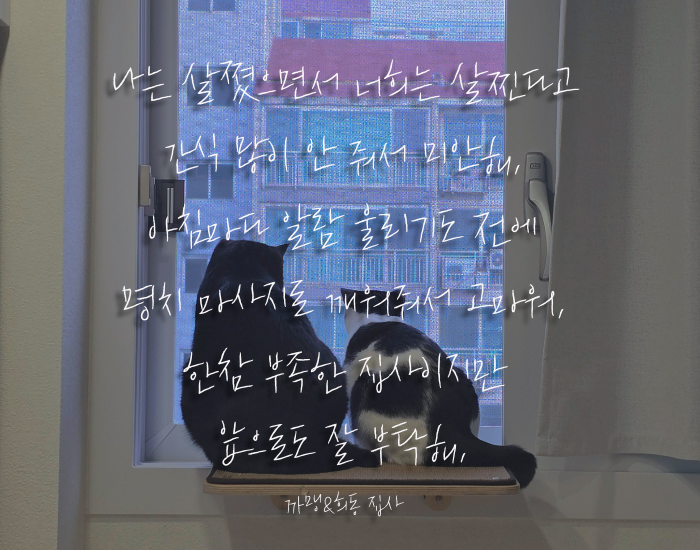 나는 살쪘으면서 너희는 살찐다고
간식 많이 안 줘서 미안해,
아침마다 알람 울리기도 전에
명치 마사지로 깨워줘서 고마워,
한참 부족한 집사이지만
앞으로도 잘 부탁해,
까맹&희동 집사